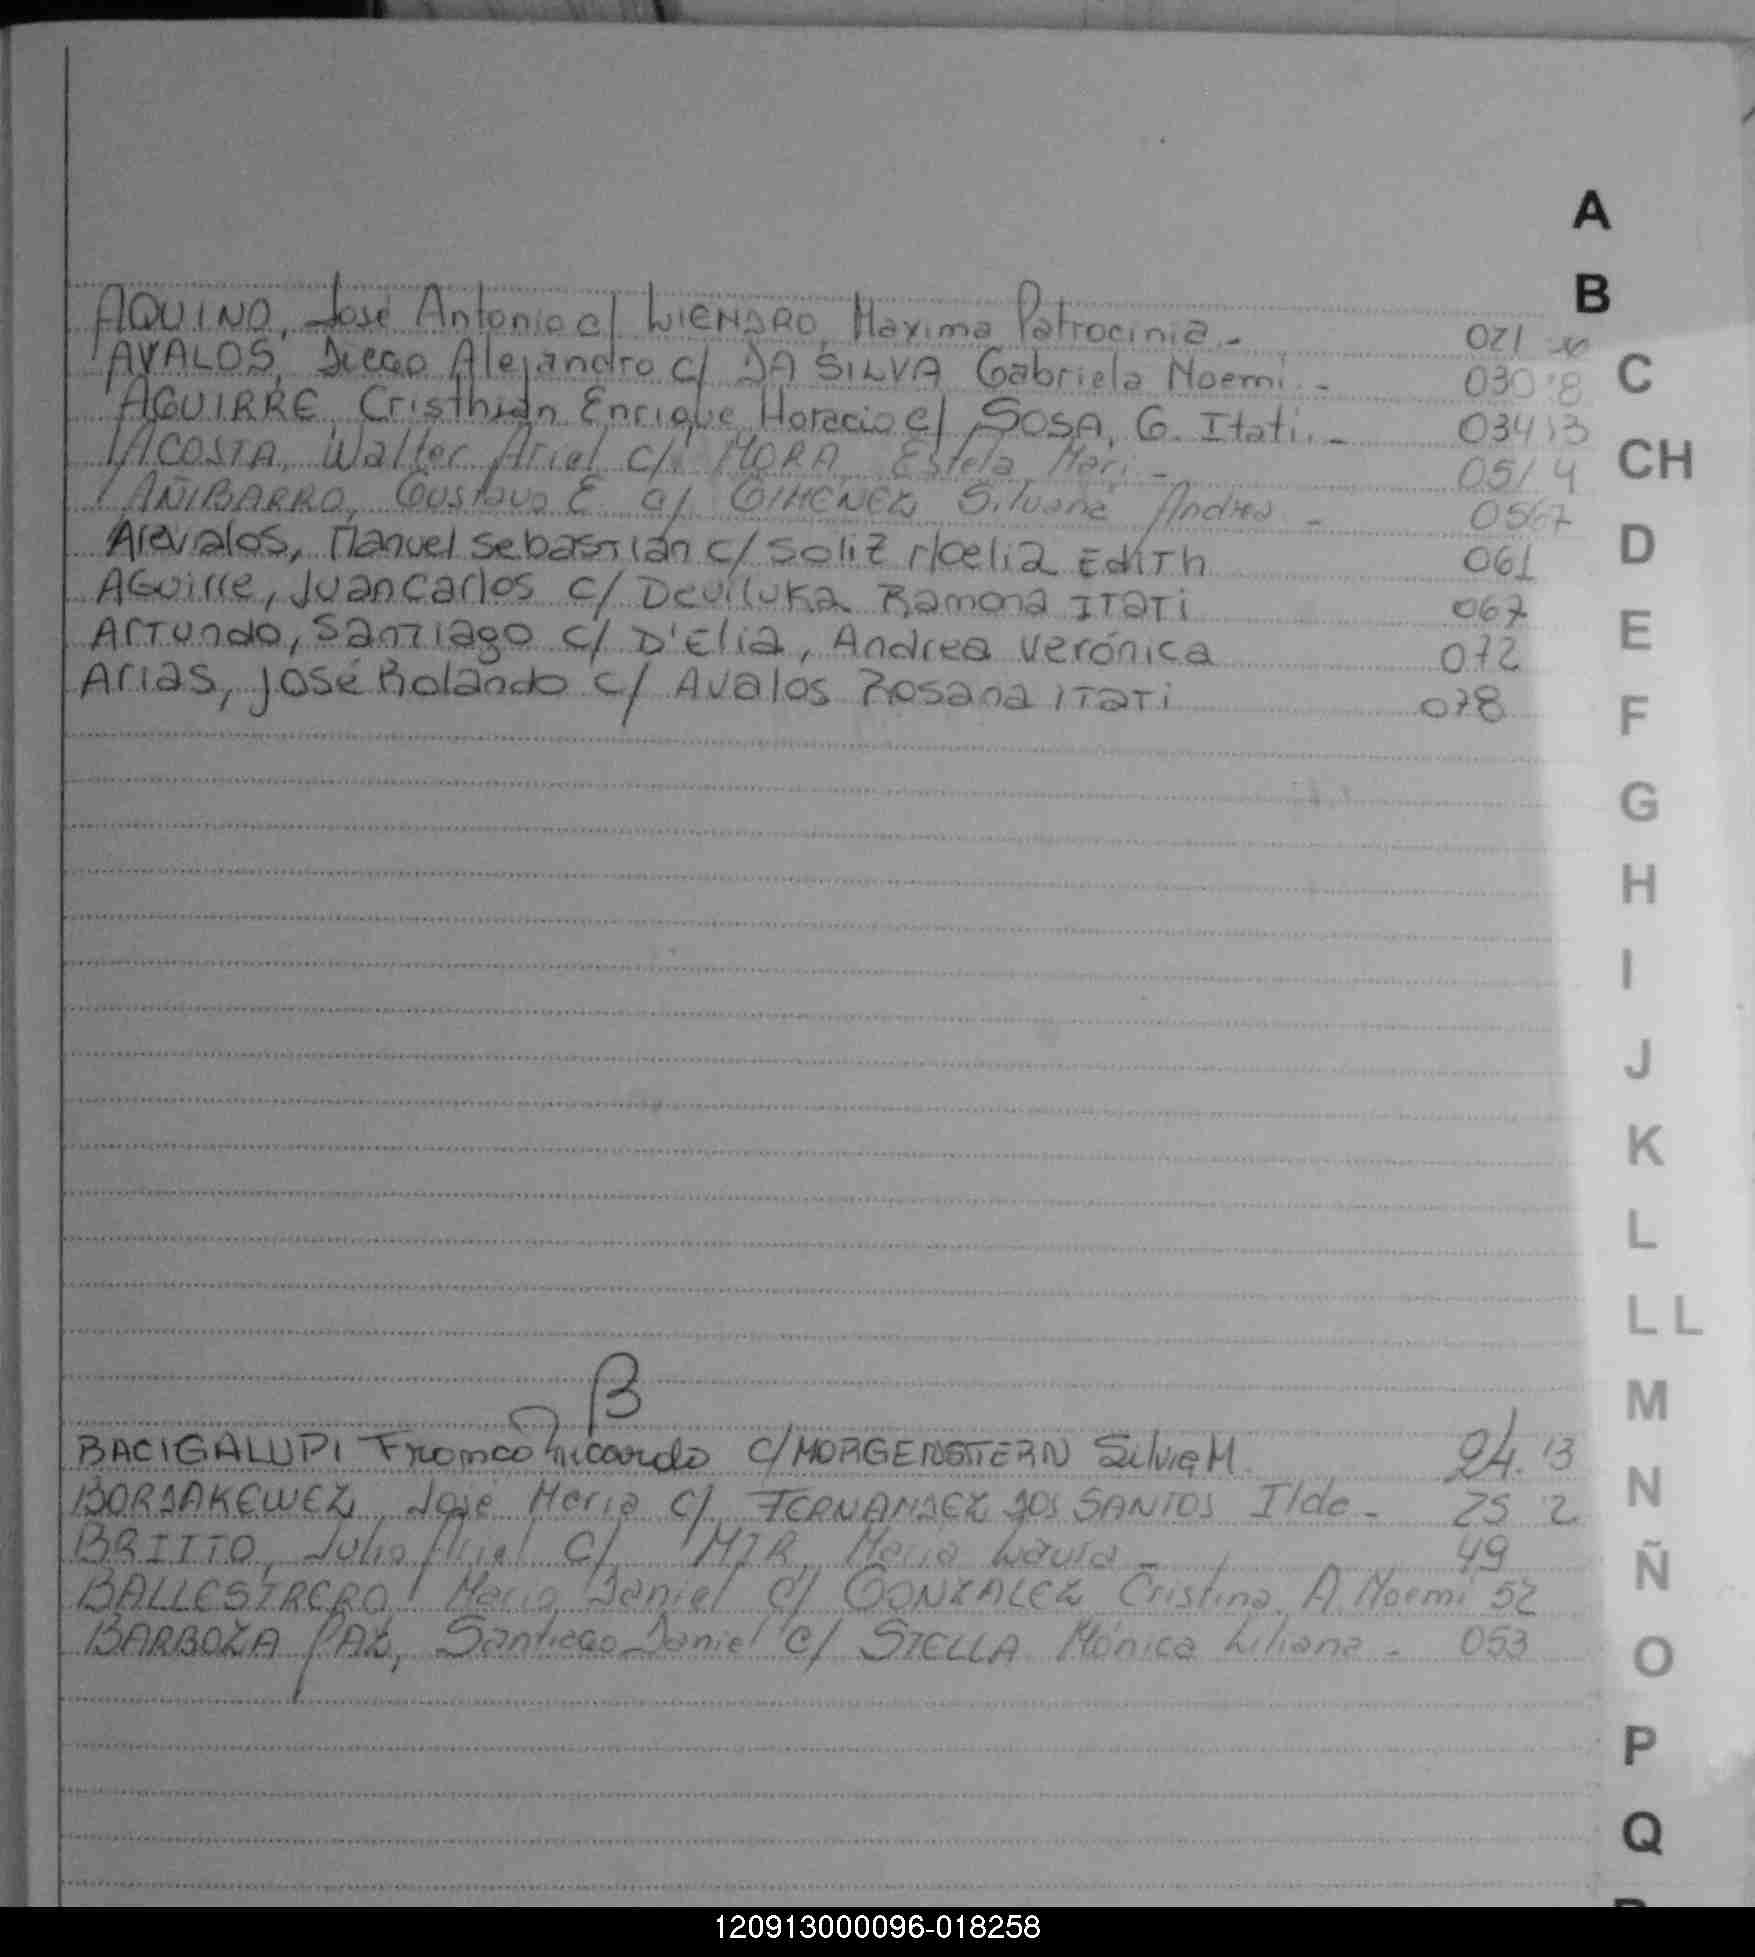 AQUINO, José Antonio c/ LIENDRO, Maxima Patrocinia.- 021
AVALOS, Diego Alejandro c/ DA SILVA Gabriela Noemi.- 030
AGUIRRE Cristhian Enrique Horacio c/ SOSA, G. Itati.- 034
ACOSTA, Walter Ariel c/ MORA Estela Mari.- 051
AÑIBARRO, Gustavo E. c/ GIMENEZ Silvana Andrea - 056
Arévalos, Manuel Sebastián c/ Soliz Noelia Edith 061
AGuirre, Juan Carlos c/ Ramona Itati 067
Artundo, Santiago c/ D'Elia, Andrea Verónica 072
Arias, José Rolando c/ Avalos Rosana Itati 078
B
BACIGALUPI Franco Ricardo c/ MORGENSTERN Silvia M. 24. 13
BORDAKEWEZ, José Maria c/ FERNANDEZ DOS SANTOS Ilda - 25 2
BRITTO, Julio Ariel c/ MIR, Maria Laura - 49
BALLESTRERO Mario Daniel c/ GONZALEZ Cristina A. Noemi 52
BARBOZA PAZ, Santiago Daniel c/ STELLA Mónica Liliana - 053
A
B
C
CH
D
E
F
G
H
I
J
K
L
LL
M
N
Ñ
O
P
Q
120913000096-018258